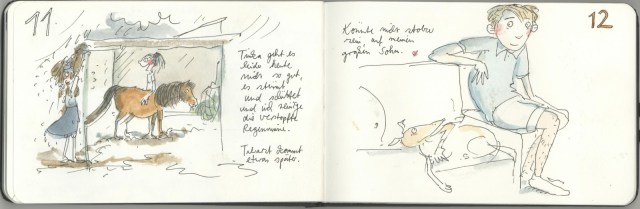 11
Trinka geht es
leider heute
nicht so gut,
es stürmt
und schüttet
und ich reinige
die verstopfte
Regenrinne.
Tierarzt kommt
etwas später.
Könnte nicht stolzer
sein auf meinen
großen Sohn.
12